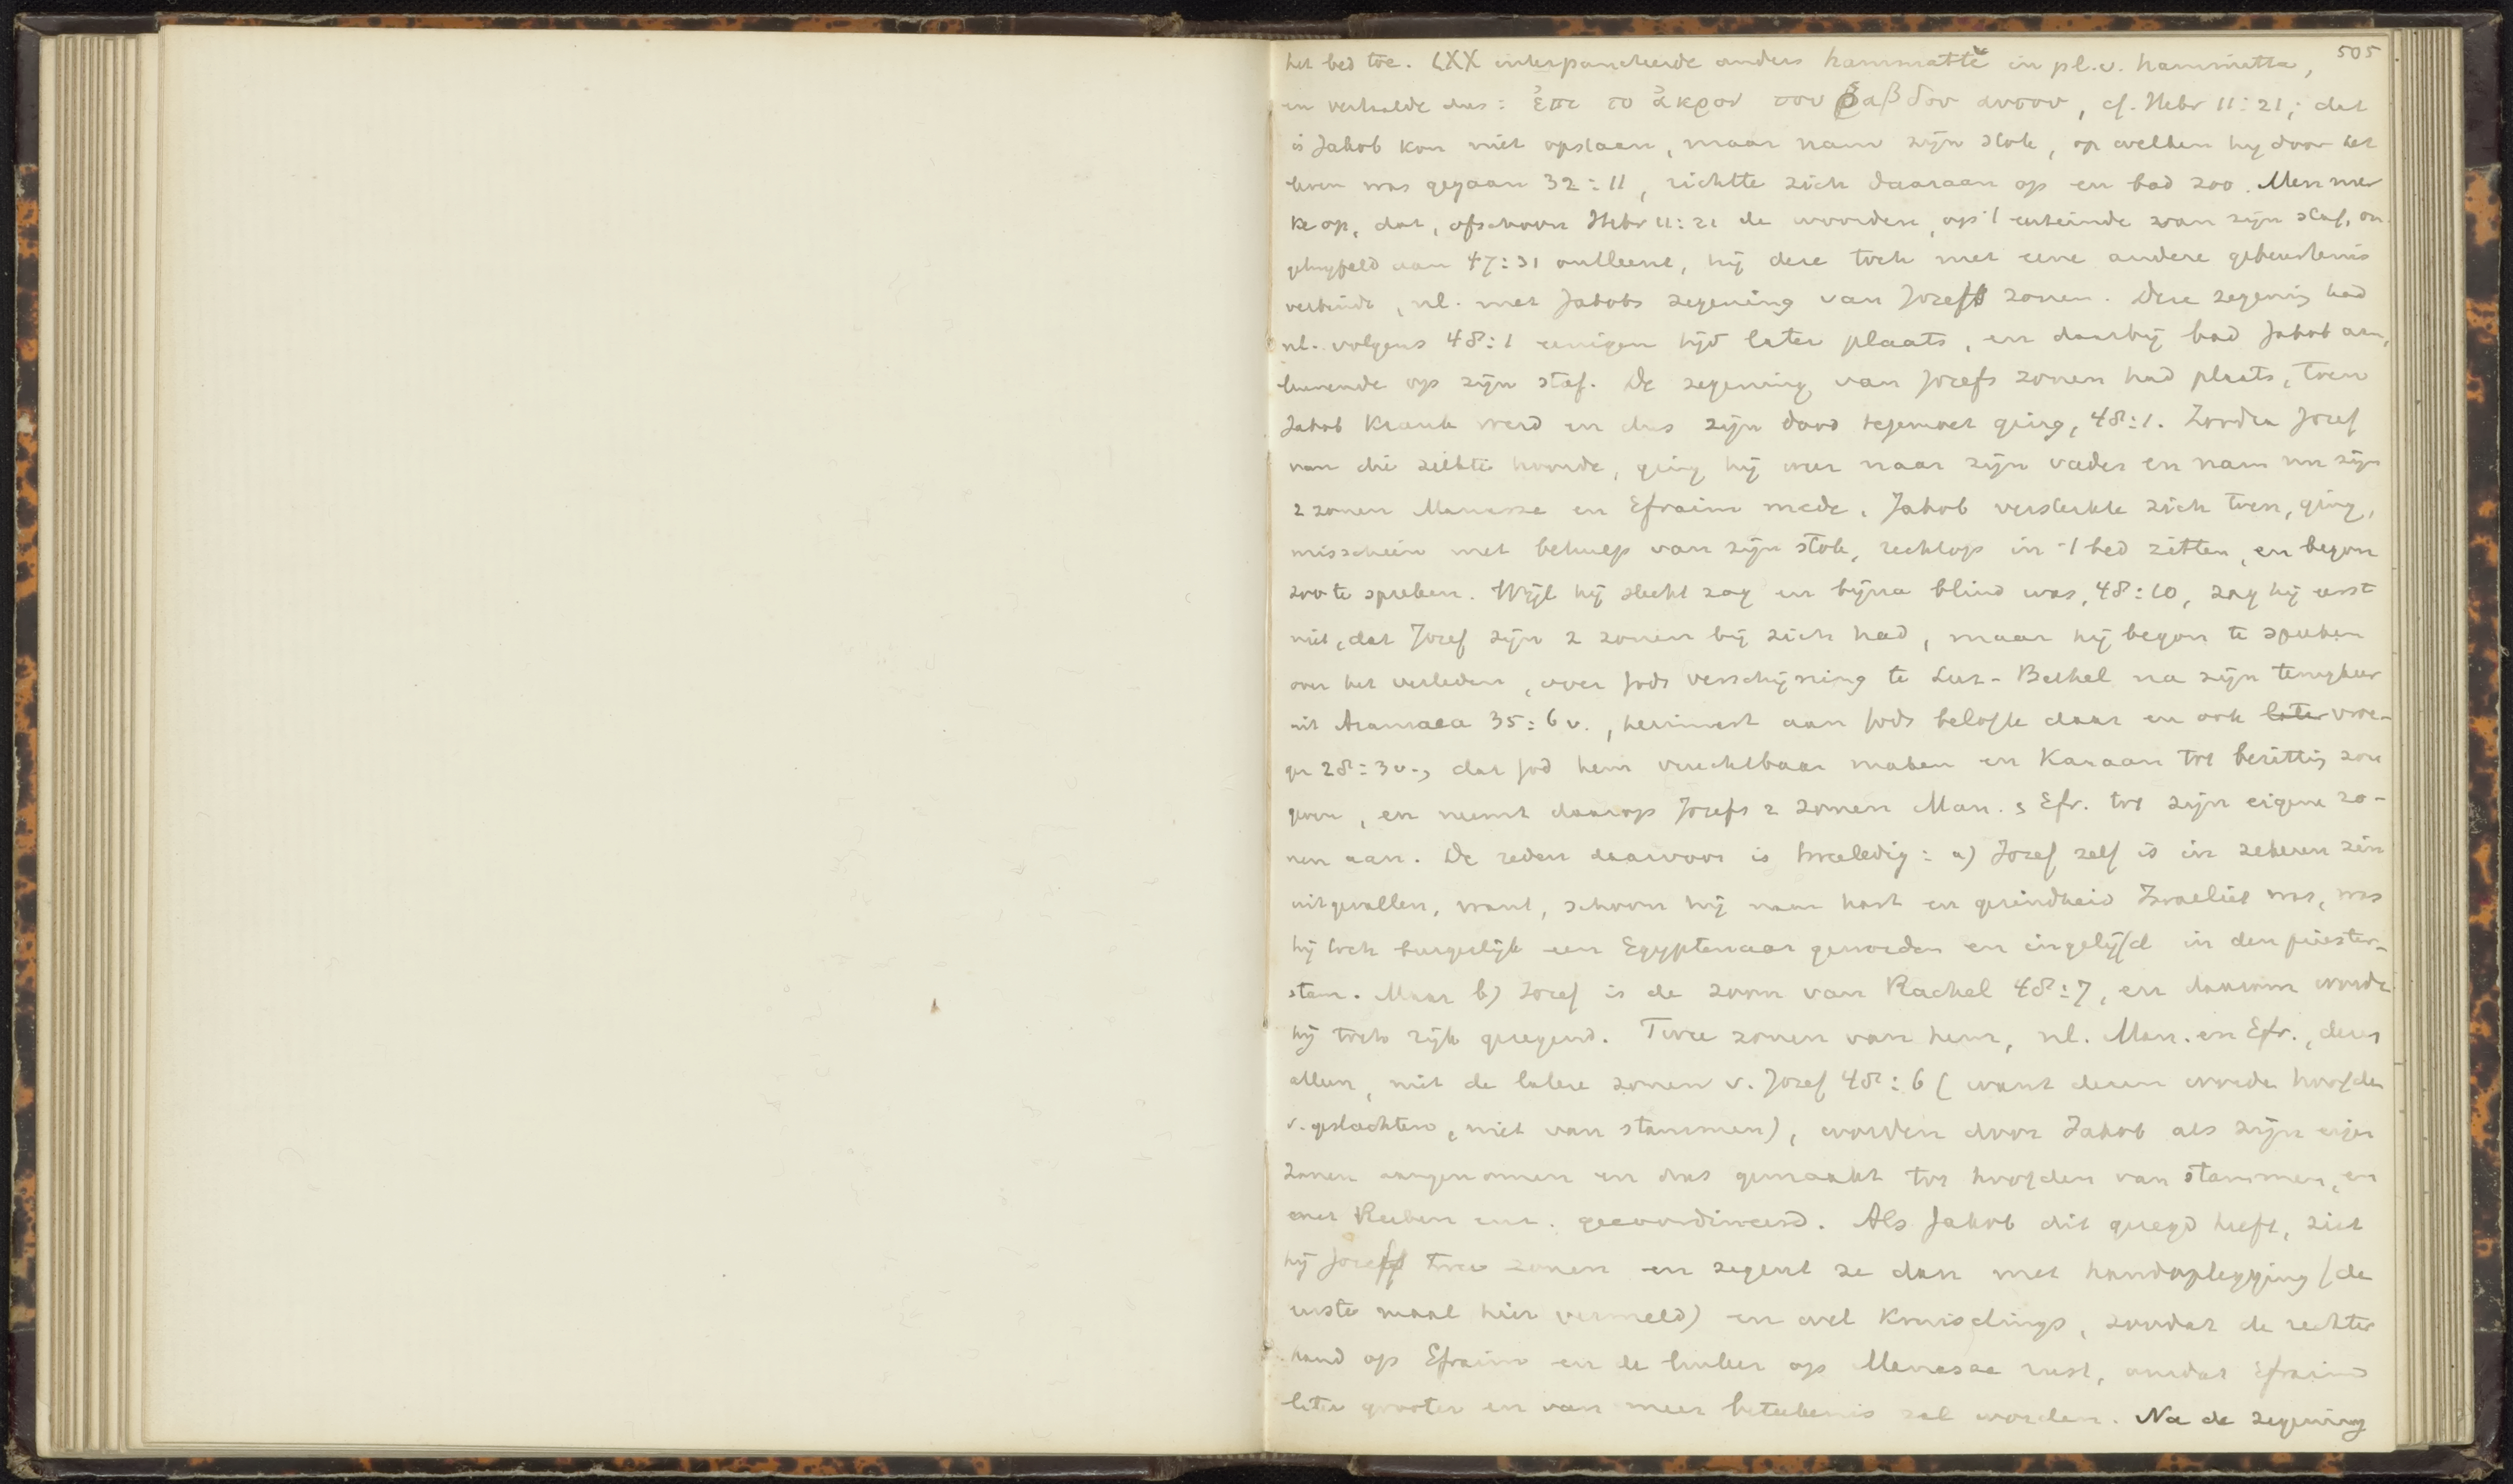 505
het bed toe. LXX interpuncteerde anders hammatte in pl. v. hammitta,
en vertaalde dus: ἐπι το ἀκρον του ῥαβδου αυτου, cf. Hebr 11:21; dat
is Jakob kon niet opstaan, maar nam zijn stok, op welken hij door het
leven was gegaan 32:11, richtte zich daaraan op en bad zoo. Men mer
ke op, dat, ofschoon Hebr 11:21 de woorden, op 't uiteinde van zijn staf, on
getwijfeld aan 47:31 ontleent, hij deze toch met eene andere gebeurtenis
verbindt, nl. met Jakobs zegening van Jozefs zonen. Deze zegening had
nl. volgens 48:1 eenigen tijd later plaats, en daarbij bad Jakob aan,
leunende op zijn staf. De zegening van Jozefs zonen had plaats, toen
Jakob krank werd en dus zijn dood tegemoet ging, 48:1. Zoodra Jozef
van die ziekte hoorde, ging hij weer naar zijn vader en nam nu zijn
2 zonen Manasse en Efraim mede. Jakob versterkte zich toen, ging,
misschien met behulp van zijn stok, rechtop in 't bed zitten, en begon
zoo te spreken. Wijl hij slecht zag en bijna blind was, 48:10, zag hij eerst
niet, dat Jozef zijn 2 zonen bij zich had, maar hij begon te spreken
over het verleden, over Gods verschijning te Luz-Bethel na zijn terugkeer
uit Aramaea 35:6 v., herinnert aan Gods belofte daar en ook later vroe-
ger 28:3 v., dat God hem vruchtbaar maken en Kanaan tot bezitting zou
geven, en neemt daarop Jozefs 2 zonen Man. & Efr. tot zijn eigene zo-
nen aan. De reden daarvoor is tweeledig: a) Jozef zelf is in zekeren zin
uitgevallen, want, schoon hij naar hart en gezindheid Israeliet was, was
hij toch burgerlijk een Egyptenaar geworden en ingelijfd in den priester-
stam. Maar b) Jozef is de zoon van Rachel 48:7, en daarom wordt
hij toch rijk gezegend. Twee zonen van hem, nl. Man. en Efr., deze
alleen, niet de latere zonen v. Jozef 48:6 (want dezen worden hoofden
v. geslachten, niet van stammen), worden door Jakob als zijn eigen
zonen aangenomen en dus gemaakt tot hoofden van stammen, en
met Ruben enz. gecoordineerd. Als Jakob dit gezegd heeft, ziet
hij Jozefs twee zonen en zegent ze dan met handoplegging (de
eerste maal hier vermeld) en wel kruiselings, zoodat de rechter
hand op Efraim en de linker op Manasse rust, omdat Efraim
later grooter en van meer beteekenis zal worden. Na de zegening